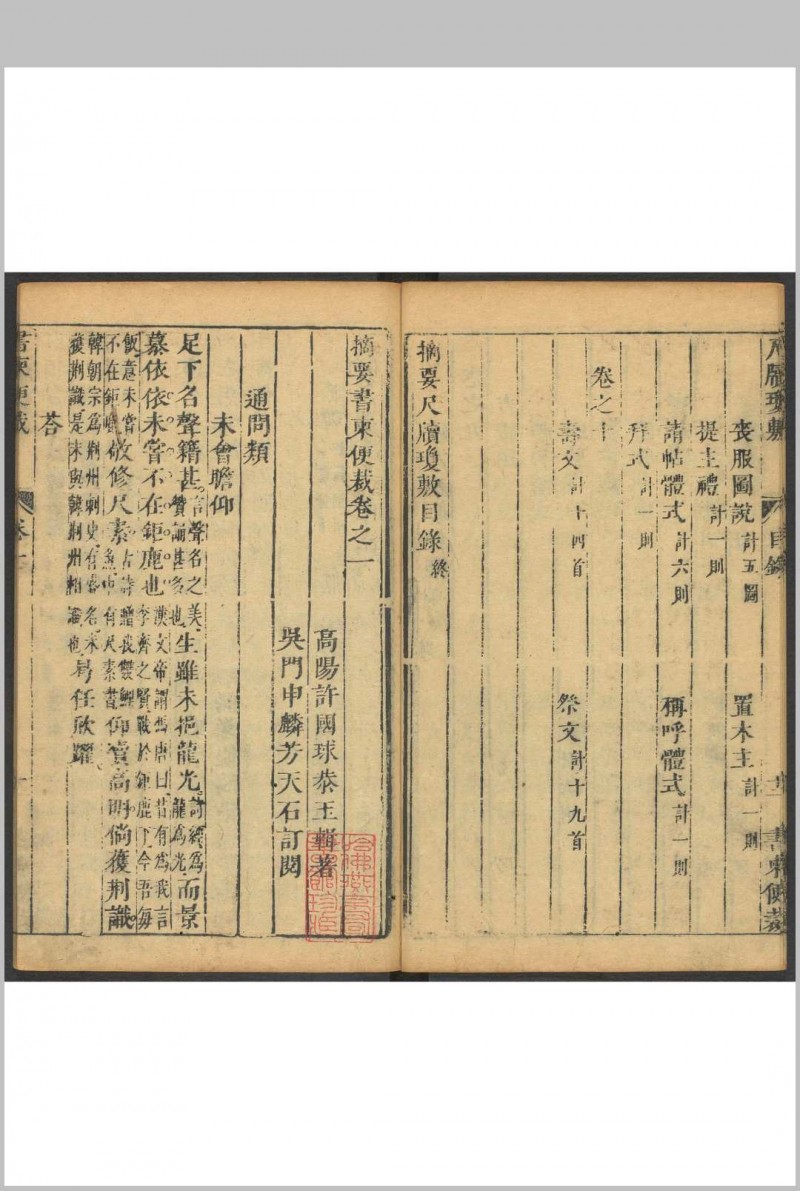 尺牘瓊敷 目錄 書柬便裁
喪服圖說 計五圖 置木主 計一則
提主禮 計一則
請帖體式 計六則 稱呼體式 計一則
拜式 計一則
卷之十
壽文 計十四首 祭文 計十九首
摘要尺牘瓊敷目錄 終
摘要書柬便裁卷之一
高陽許國球恭王輯著
吳門申麟芳天石訂閱
通問類
未會瞻仰
足下名聲籍甚言聲名之美讚誦甚多也生雖未挹龍光詩經為龍為光而景
慕依依未嘗不在鉅鹿也漢文帝謂馮唐曰昔有為我言李齊之賢戰於鉅鹿下今吾每
飯意未嘗不在鉅鹿敬修尺素古詩贈我雙鯉魚中有尺素書仰瀆高明倘獲荊識
韓朝宗為荊州刺史有客名未獲荊識是未與韓荊州相識也曷任欣躍
答
書柬便裁 卷十一